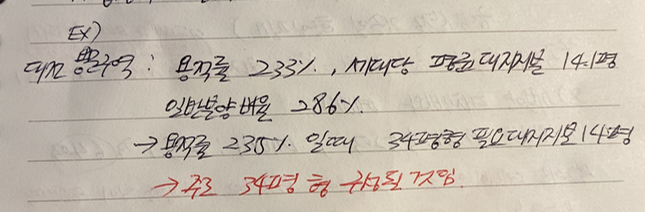 Ex)
대전 구역 : 용적률 233%, 세대당 평균 대지지분 14.1평
일반분양 비율 286%.
→ 용적률 235% 일때 34평형 필요대지지분 14평
→ 주로 34평형 구성될 것임.